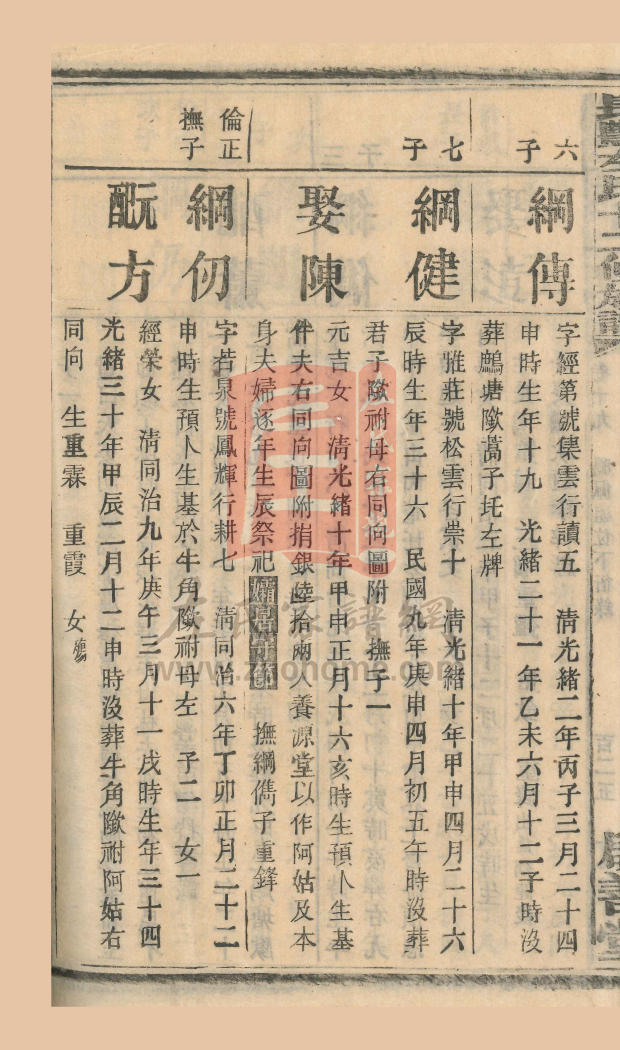 六子
綱傳
字經第號集雲行讀五 清光緒二年丙子三月二十四
申時生年十九 光緒二十一年乙未六月十二子時沒
葬鷓塘歞蒿子圫左牌
七子
綱健
字惟莊號松雲行崇十 清光緒十年甲申四月二十六
辰時生年三十六 民國九年庚申四月初五午時沒葬
君子歞祔母右同向圖附 撫子一
娶陳
元吉女 清光緒十年甲申正月十六亥時生預卜生基
件夫右同向圖附捐銀陸拾兩入養源堂以作阿姑及本
身夫婦逐年生辰祭祀孀居守節 撫綱儁子重鋒
倫正
撫子
綱仞
字若泉號鳳輝行耕七 清同治六年丁卯正月二十二
申時生預卜生基於牛角歞祔母左 子二 女一
配阮方
經榮女 清同治九年庚午三月十一戌時生年三十四
光緒三十年甲辰二月十二申時沒葬牛角歞祔阿姑右
同向 生重霖 重霞 女殤
百二五
www.zuonome.com